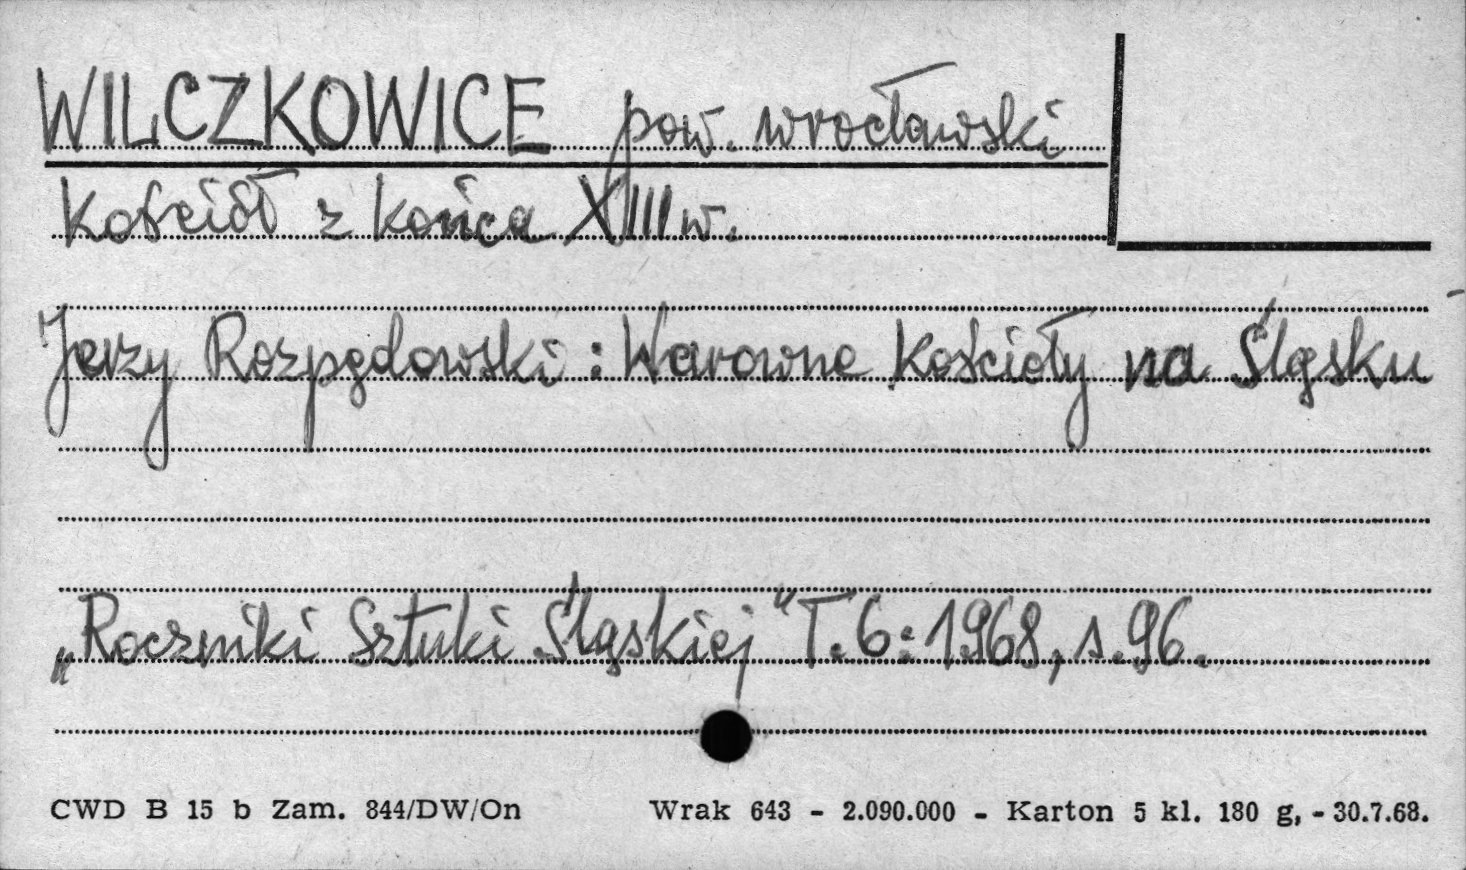 WILCZKOWICE pow. wrocławski
Kościół z końca XIII w.
Jerzy Rozpędowski: Warowne Kościoły na Śląsku
„Roczniki Sztuki Śląskiej" T.6:1968, s.96.
CWD B 15 b Zam. 844/DW/On Wrak 643 - 2.090.000 - Karton 5 kl. 180 g, - 30.7.68.